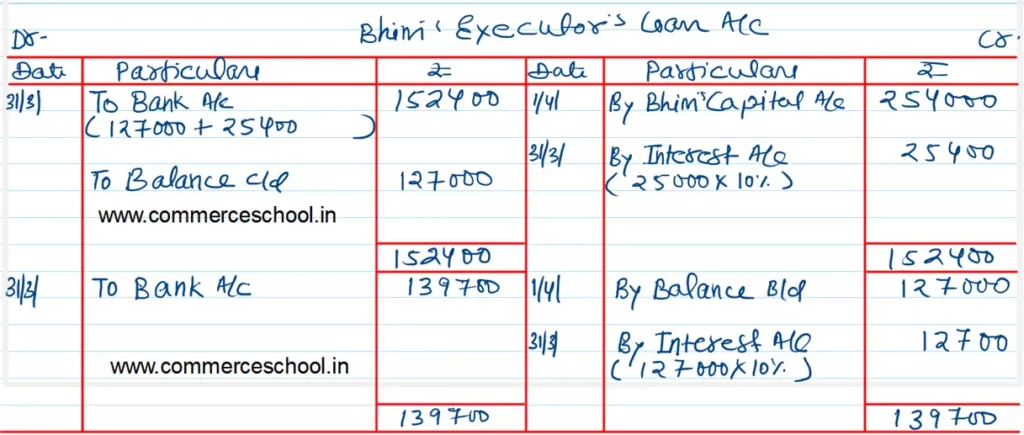 Bhim's Executor's Loan A/c
Dr. Cr.
Date Particulars ₹ Date Particulars ₹
31/3/ To Bank A/c 152400 1/4/ By Bhim's Capital A/c 254000
(127000 + 25400 )
31/3/ By Interest A/c 25400
To Balance c/d 127000 (25000 X 10%.)
www.commerceschool.in
152400 152400
31/3/ To Bank A/c 139700 1/4/ By Balance B/d 127000
31/3/ By Interest A/c 12700
www.commerceschool.in (127000X10%.)
139700 139700